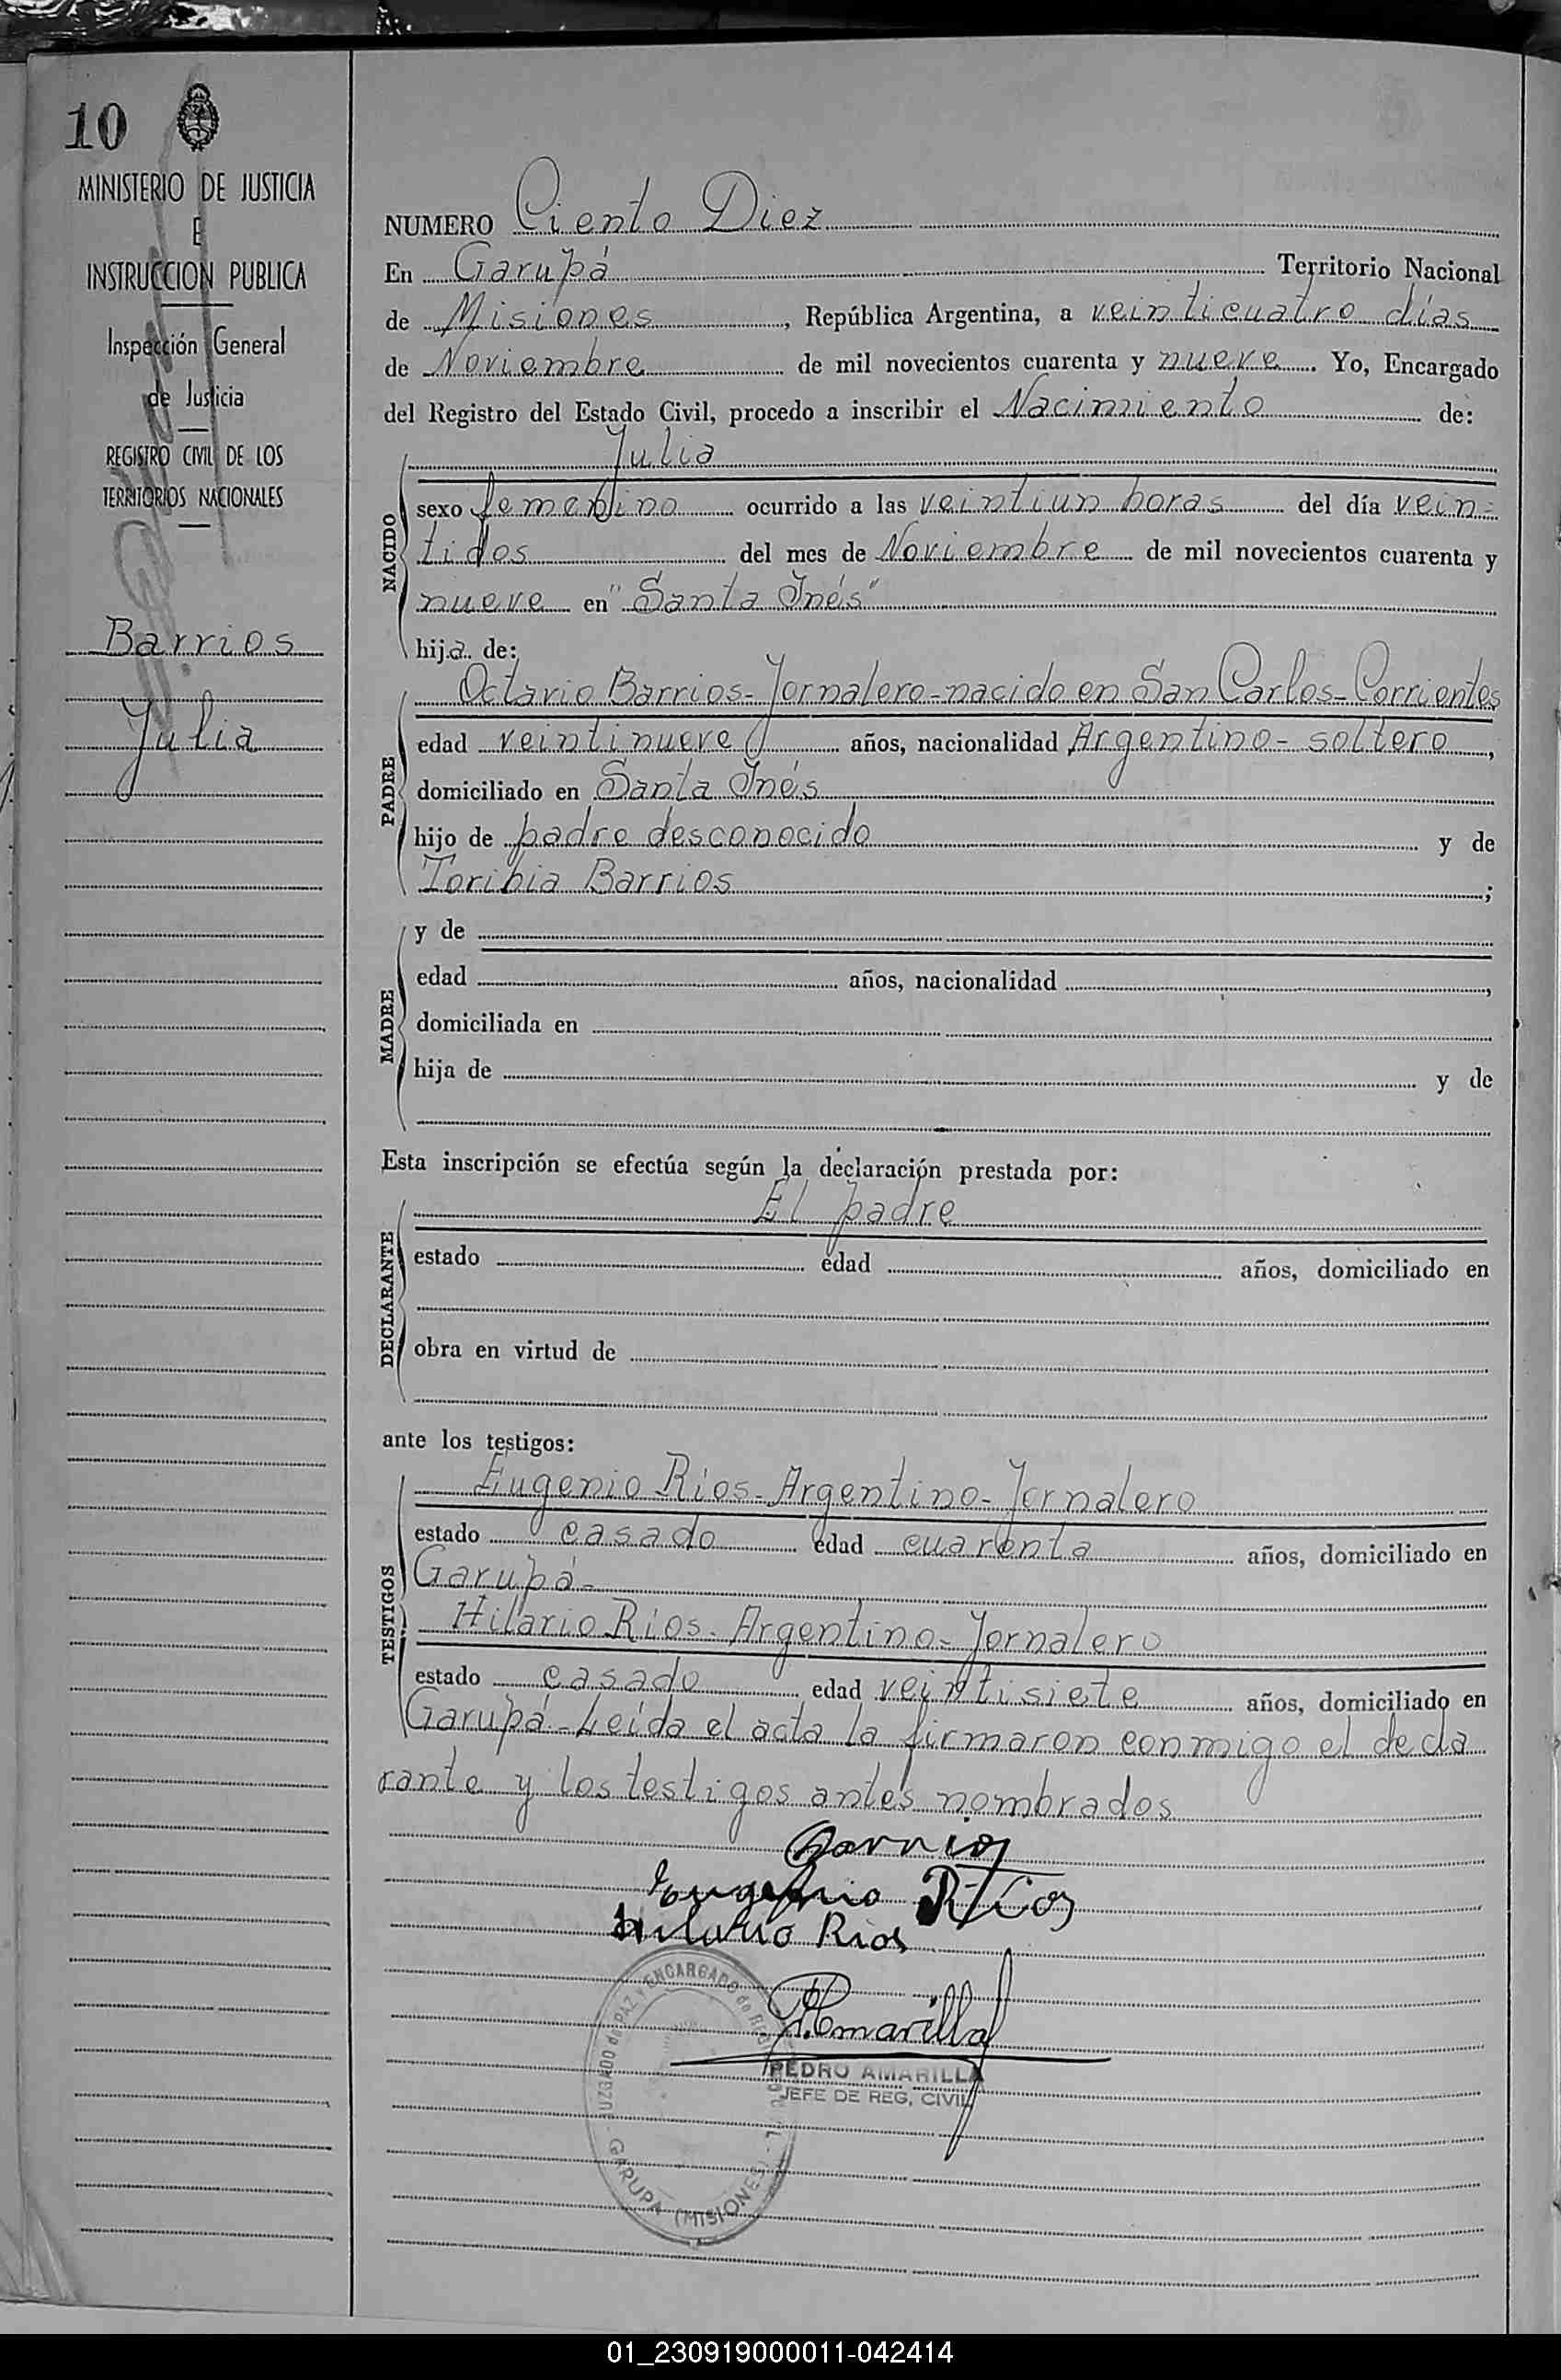 10
MINISTERIO DE JUSTICIA
E
INSTRUCCION PUBLICA
Inspección General
de Justicia
REGISTRO CIVIL DE LOS
TERRITORIOS NACIONALES
Barrios
Julia
NUMERO Ciento Diez
En Garupá Territorio Nacional
de Misiones, República Argentina, a veinticuatro días
de Noviembre de mil novecientos cuarenta y nueve. Yo, Encargado
del Registro del Estado Civil, procedo a inscribir el Nacimiento de:
NACIDO
Julia
sexo femenino ocurrido a las veintiun horas del día vein-
tidos del mes de Noviembre de mil novecientos cuarenta y
nueve en "Santa Inés"
hija de:
PADRE
Octavio Barrios-Jornalero-nacido en San Carlos-Corrientes
edad veintinueve años, nacionalidad Argentino- soltero,
domiciliado en Santa Inés
hijo de padre desconocido y de
Toribia Barrios;
MADRE
y de
edad años, nacionalidad ,
domiciliada en
hija de y de
Esta inscripción se efectúa según la declaración prestada por:
DECLARANTE
El padre
estado edad años, domiciliado en
obra en virtud de
ante los testigos:
TESTIGOS
Eugenio Ríos-Argentino-Jornalero
estado casado edad cuarenta años, domiciliado en
Garupá-
Hilario Ríos-Argentino-Jornalero
estado casado edad veintisiete años, domiciliado en
Garupá-Leída el acta la firmaron conmigo el decla
rante y los testigos antes nombrados
Barrios
Eugenio Rios
Hilario Rios
P. Amarilla
PEDRO AMARILLA
JEFE DE REG. CIVIL
JUZGADO de PAZ y ENCARGADO de
GARUPA (MISIONES)
01_230919000011-042414